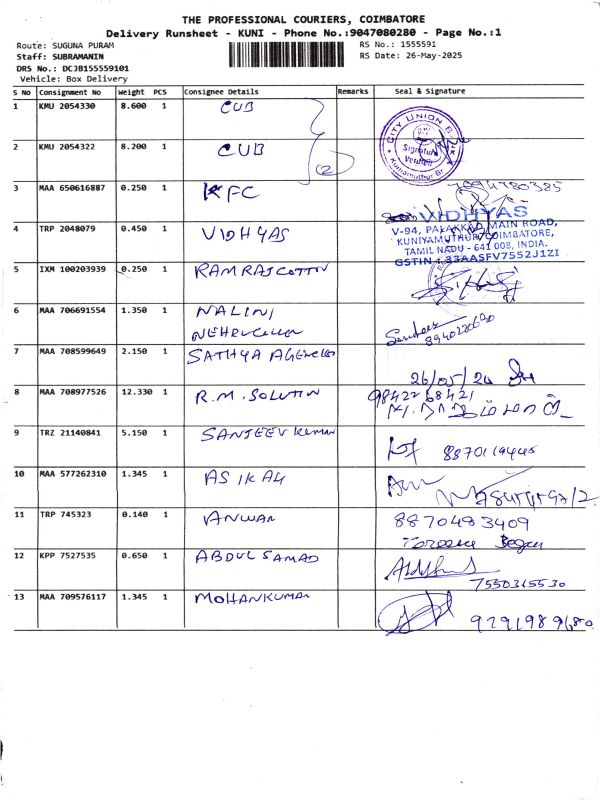 THE PROFESSIONAL COURIERS, COIMBATORE
Delivery Runsheet - KUNI - Phone No.:9047080280 - Page No.:1
Route: SUGUNA PURAM
RS No.: 1555591
Staff: SUBRAMANIN
RS Date: 26-May-2025
DRS No.: DCJB155559101
Vehicle: Box Delivery
S No Consignment No Weight PCS Consignee Details Remarks Seal & Signature
1 KMU 2054330 8.600 1 CUB
CITY UNION B
Signature
Verified
Kuniamuthur Br.
2 KMU 2054322 8.200 1 CUB
(2)
3 MAA 650616887 0.250 1 KFC
4 TRP 2048079 0.450 1 VIDHYAS
VIDHYAS
V-94, PALAKKAD MAIN ROAD,
KUNIYAMUTHUR, COIMBATORE,
TAMIL NADU - 641 008, INDIA.
GSTIN : 33AASFV7552J1ZI
5 IXM 100203939 0.250 1 RAMRAJ COTTON
6 MAA 706691554 1.350 1 NALINI
7 MAA 708599649 2.150 1 SATHYA AGENCIES
26/05/20
8 MAA 708977526 12.330 1 R.M. SOLUTIN
9842268421
9 TRZ 21140841 5.150 1 SANJEEV KUMAR
8870119445
10 MAA 577262310 1.345 1 ASIKALI
11 TRP 745323 0.140 1 ANWAR
8870483409
12 KPP 7527535 0.650 1 ABDUL SAMAD
7550315530
13 MAA 709576117 1.345 1 MOHANKUMAR
9291989680